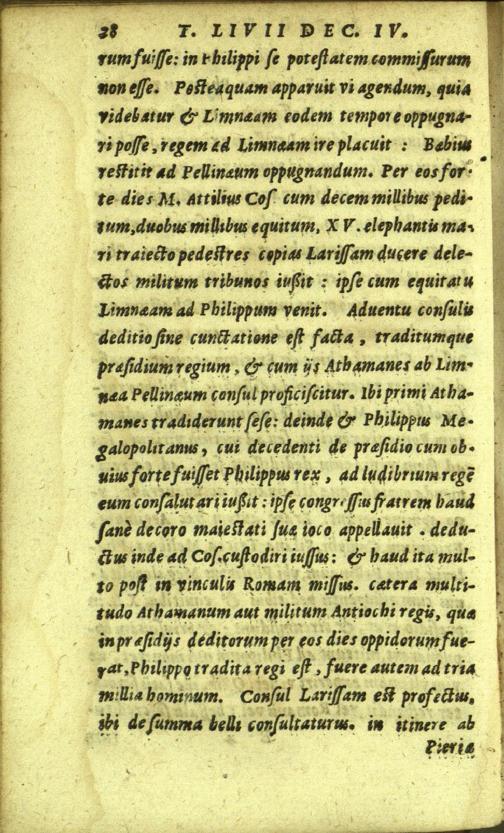 28 T. LIVII DEC. IV.
rum fuiſſe: in Philippi ſe poteſtatem commiſſurum
non eſſe. Poſteaquam apparuit vi agendum, quia
videbatur & Limnæam eodem tempore oppugna-
ri poſſe, regem ad Limnæam ire placuit : Bæbius
reſtitit ad Pellinæum oppugnandum. Per eos for-
te dies M. Attilius Coſ cum decem millibus pedi-
tum, duobus millibus equitum, XV. elephantis ma-
ri traiecto pedeſtres copias Lariſſam ducere dele-
ctos militum tribunos iußit : ipſe cum equitatu
Limnæam ad Philippum venit. Aduentu conſulis
deditio ſine cunctatione eſt facta, traditumque
præſidium regium, & cum ijs Athamanes ab Lim-
næa Pellinæum conſul proficiſcitur. Ibi primi Atha-
manes tradiderunt ſeſe: deinde & Philippus Me-
galopolitanus, cui decedenti de præſidio cum ob-
uius forte fuiſſet Philippus rex, ad ludibrium regẽ
eum conſalutari iußit : ipſe congreſſus fratrem haud
ſanè decoro maieſtati ſuæ ioco appellauit. dedu-
ctus inde ad Coſ. cuſtodiri iuſſus: & haud ita mul-
to poſt in vinculis Romam miſſus. cætera multi-
tudo Athamanum aut militum Antiochi regis, quæ
in præſidijs deditorum per eos dies oppidorum fue-
rat, Philippo tradita regi eſt, fuere autem ad tria
millia hominum. Conſul Lariſſam eſt profectus,
ibi de ſumma belli conſultaturus. in itinere ab
Pieria